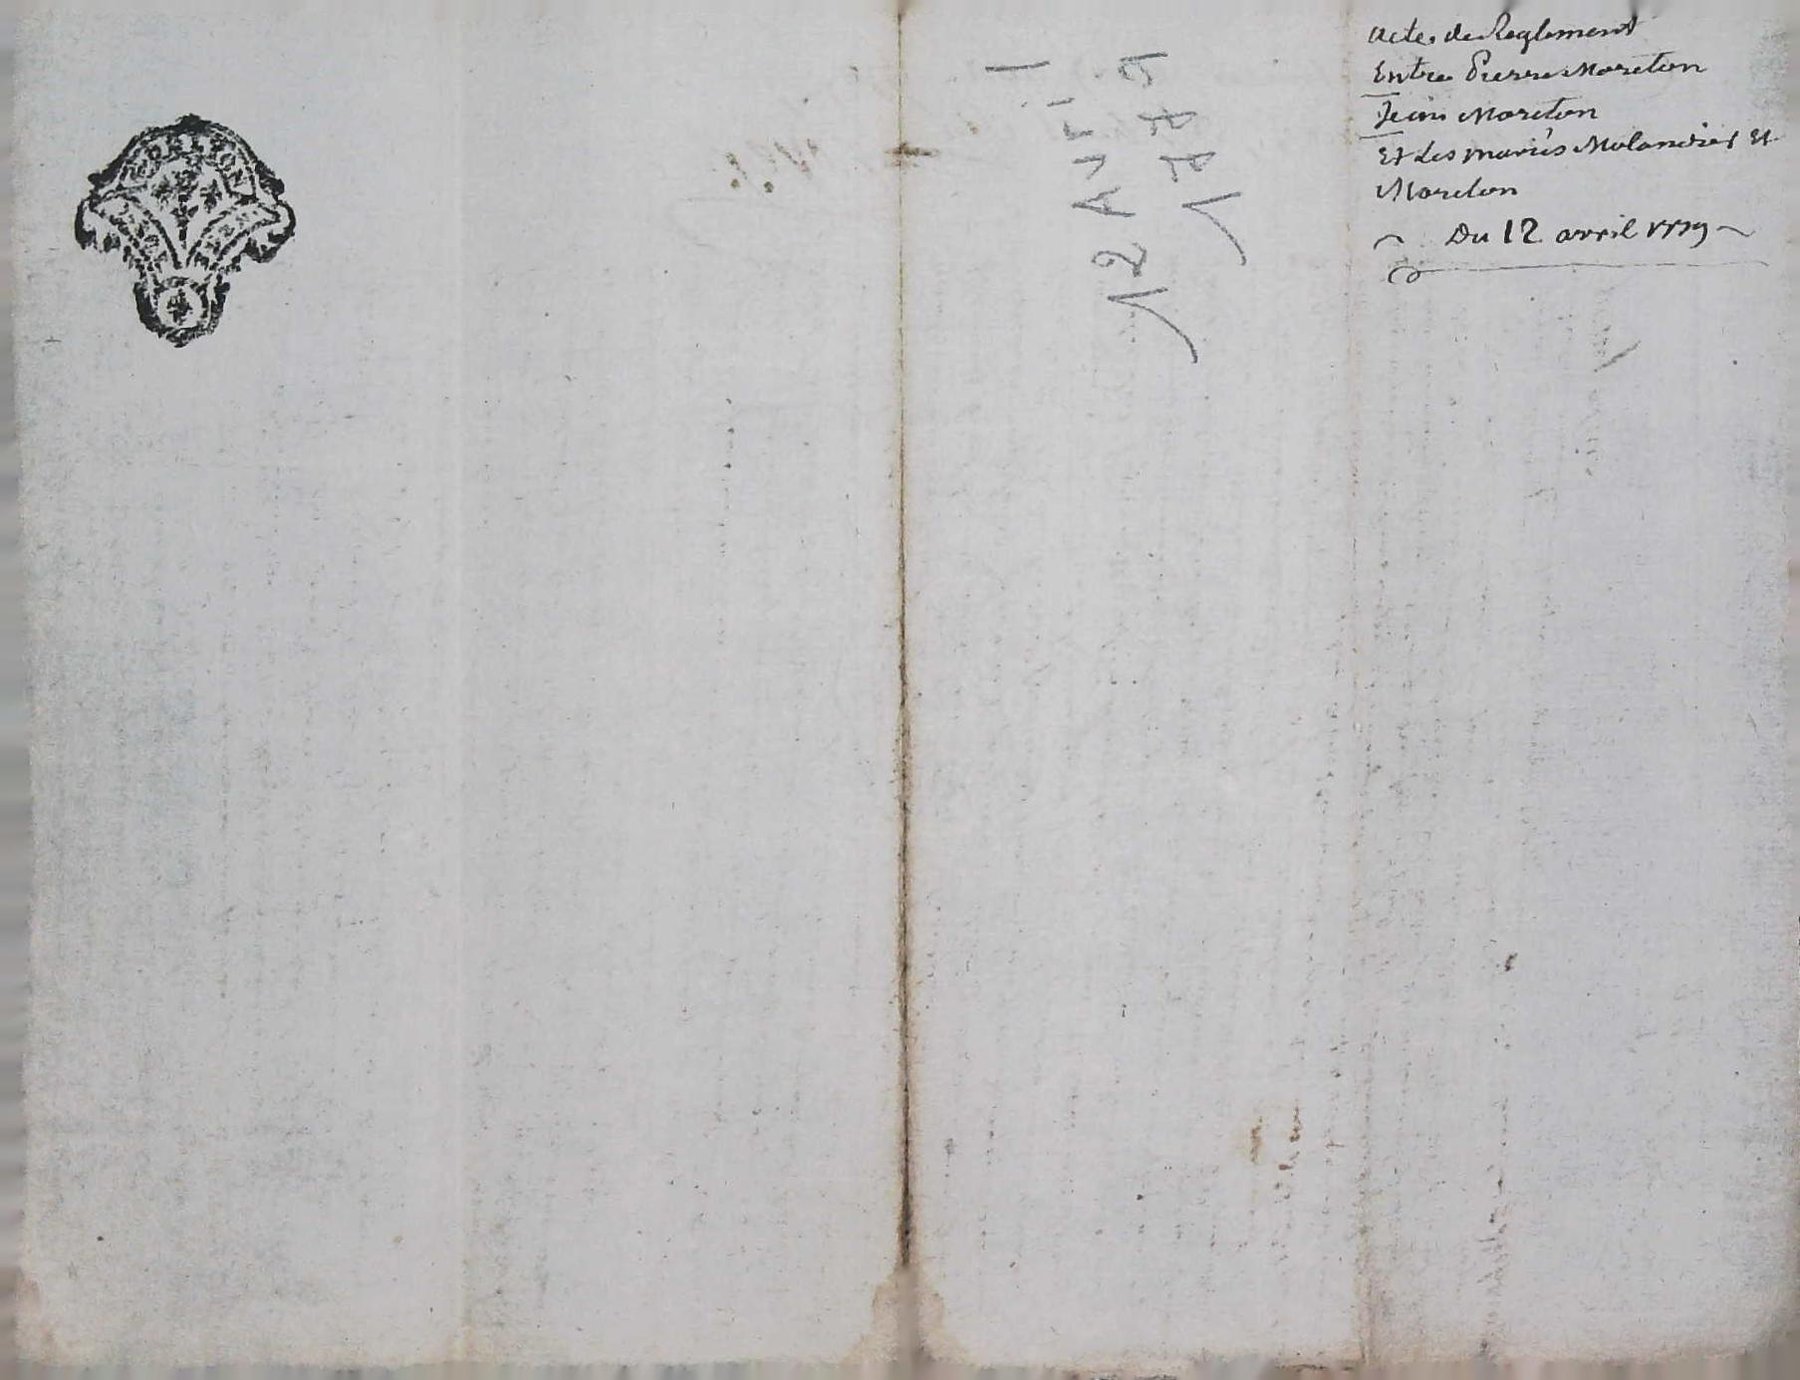 acte de Reglement
Entre Pierre Moreton
Jean Moreton
Et Les mariés Malandrier Et
Moreton
Du 12 avril 1779
12 Avril
1775